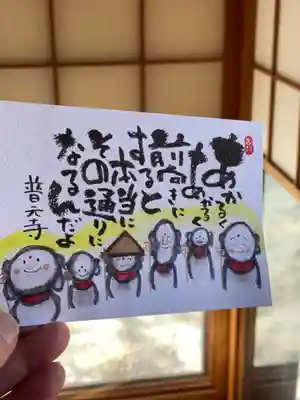 あかるく
前向きに
すると
本当に
その通りに
なるんだよ
普元寺